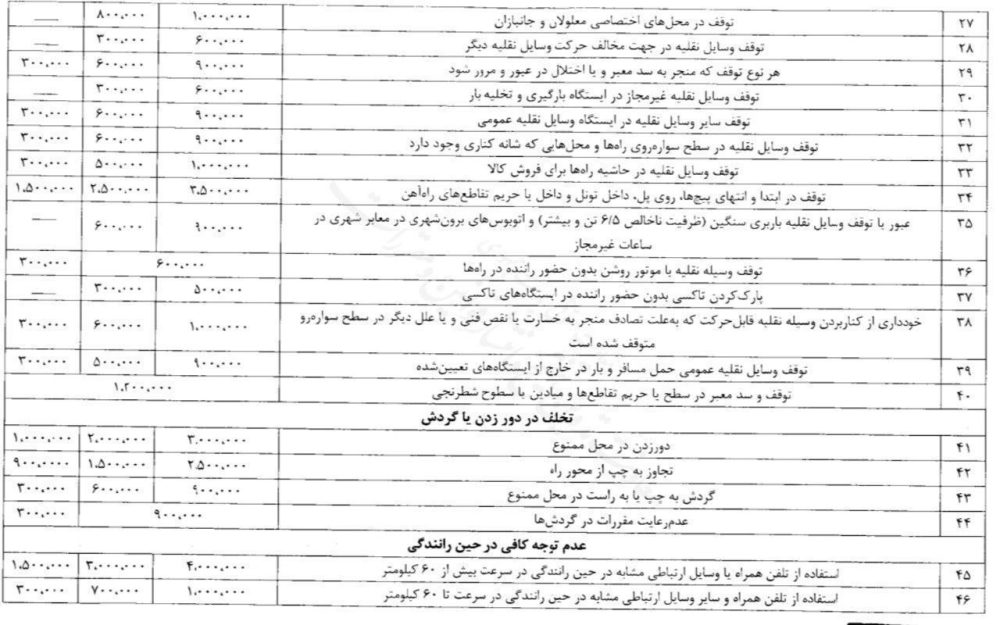 ۲۷ توقف در محل‌های اختصاصی معلولان و جانبازان ۱،۰۰۰،۰۰۰ ۸۰۰،۰۰۰ —
۲۸ توقف وسایل نقلیه در جهت مخالف حرکت وسایل نقلیه دیگر ۶۰۰،۰۰۰ ۳۰۰،۰۰۰ —
۲۹ هر نوع توقف که منجر به سد معبر و یا اختلال در عبور و مرور شود ۹۰۰،۰۰۰ ۶۰۰،۰۰۰ ۳۰۰،۰۰۰
۳۰ توقف وسایل نقلیه غیرمجاز در ایستگاه بارگیری و تخلیه بار ۶۰۰،۰۰۰ ۳۰۰،۰۰۰ —
۳۱ توقف سایر وسایل نقلیه در ایستگاه وسایل نقلیه عمومی ۹۰۰،۰۰۰ ۶۰۰،۰۰۰ ۳۰۰،۰۰۰
۳۲ توقف وسایل نقلیه در سطح سواره‌روی راه‌ها و محل‌هایی که شانه کناری وجود دارد ۹۰۰،۰۰۰ ۶۰۰،۰۰۰ ۳۰۰،۰۰۰
۳۳ توقف وسایل نقلیه در حاشیه راه‌ها برای فروش کالا ۱،۰۰۰،۰۰۰ ۵۰۰،۰۰۰ ۳۰۰،۰۰۰
۳۴ توقف در ابتدا و انتهای پیچ‌ها، روی پل، داخل تونل و داخل یا حریم تقاطع‌های راه‌آهن ۳،۵۰۰،۰۰۰ ۲،۵۰۰،۰۰۰ ۱،۵۰۰،۰۰۰
۳۵ عبور یا توقف وسایل نقلیه باربری سنگین (ظرفیت ناخالص ۶/۵ تن و بیشتر) و اتوبوس‌های برون‌شهری در معابر شهری در ۹۰۰،۰۰۰ ۶۰۰،۰۰۰ —
ساعات غیرمجاز
۳۶ توقف وسیله نقلیه با موتور روشن بدون حضور راننده در راه‌ها ۶۰۰،۰۰۰ ۳۰۰،۰۰۰
۳۷ پارک‌کردن تاکسی بدون حضور راننده در ایستگاه‌های تاکسی ۵۰۰،۰۰۰ ۳۰۰،۰۰۰ —
۳۸ خودداری از کناربردن وسیله نقلیه قابل‌حرکت که به‌علت تصادف منجر به خسارت یا نقص فنی و یا علل دیگر در سطح سواره‌رو ۱،۰۰۰،۰۰۰ ۶۰۰،۰۰۰ ۳۰۰،۰۰۰
متوقف شده است
۳۹ توقف وسایل نقلیه عمومی حمل مسافر و بار در خارج از ایستگاه‌های تعیین‌شده ۹۰۰،۰۰۰ ۵۰۰،۰۰۰ ۳۰۰،۰۰۰
۴۰ توقف و سد معبر در سطح یا حریم تقاطع‌ها و میادین یا سطوح شطرنجی ۱،۲۰۰،۰۰۰
تخلف در دور زدن یا گردش
۴۱ دورزدن در محل ممنوع ۳،۰۰۰،۰۰۰ ۲،۰۰۰،۰۰۰ ۱،۰۰۰،۰۰۰
۴۲ تجاوز به چپ از محور راه ۲،۵۰۰،۰۰۰ ۱،۵۰۰،۰۰۰ ۹۰۰،۰۰۰
۴۳ گردش به چپ یا به راست در محل ممنوع ۹۰۰،۰۰۰ ۶۰۰،۰۰۰ ۳۰۰،۰۰۰
۴۴ عدم‌رعایت مقررات در گردش‌ها ۹۰۰،۰۰۰ ۳۰۰،۰۰۰
عدم توجه کافی در حین رانندگی
۴۵ استفاده از تلفن همراه یا وسایل ارتباطی مشابه در حین رانندگی در سرعت بیش از ۶۰ کیلومتر ۴،۰۰۰،۰۰۰ ۳،۰۰۰،۰۰۰ ۱،۵۰۰،۰۰۰
۴۶ استفاده از تلفن همراه و سایر وسایل ارتباطی مشابه در حین رانندگی در سرعت تا ۶۰ کیلومتر ۱،۰۰۰،۰۰۰ ۷۰۰،۰۰۰ ۳۰۰،۰۰۰